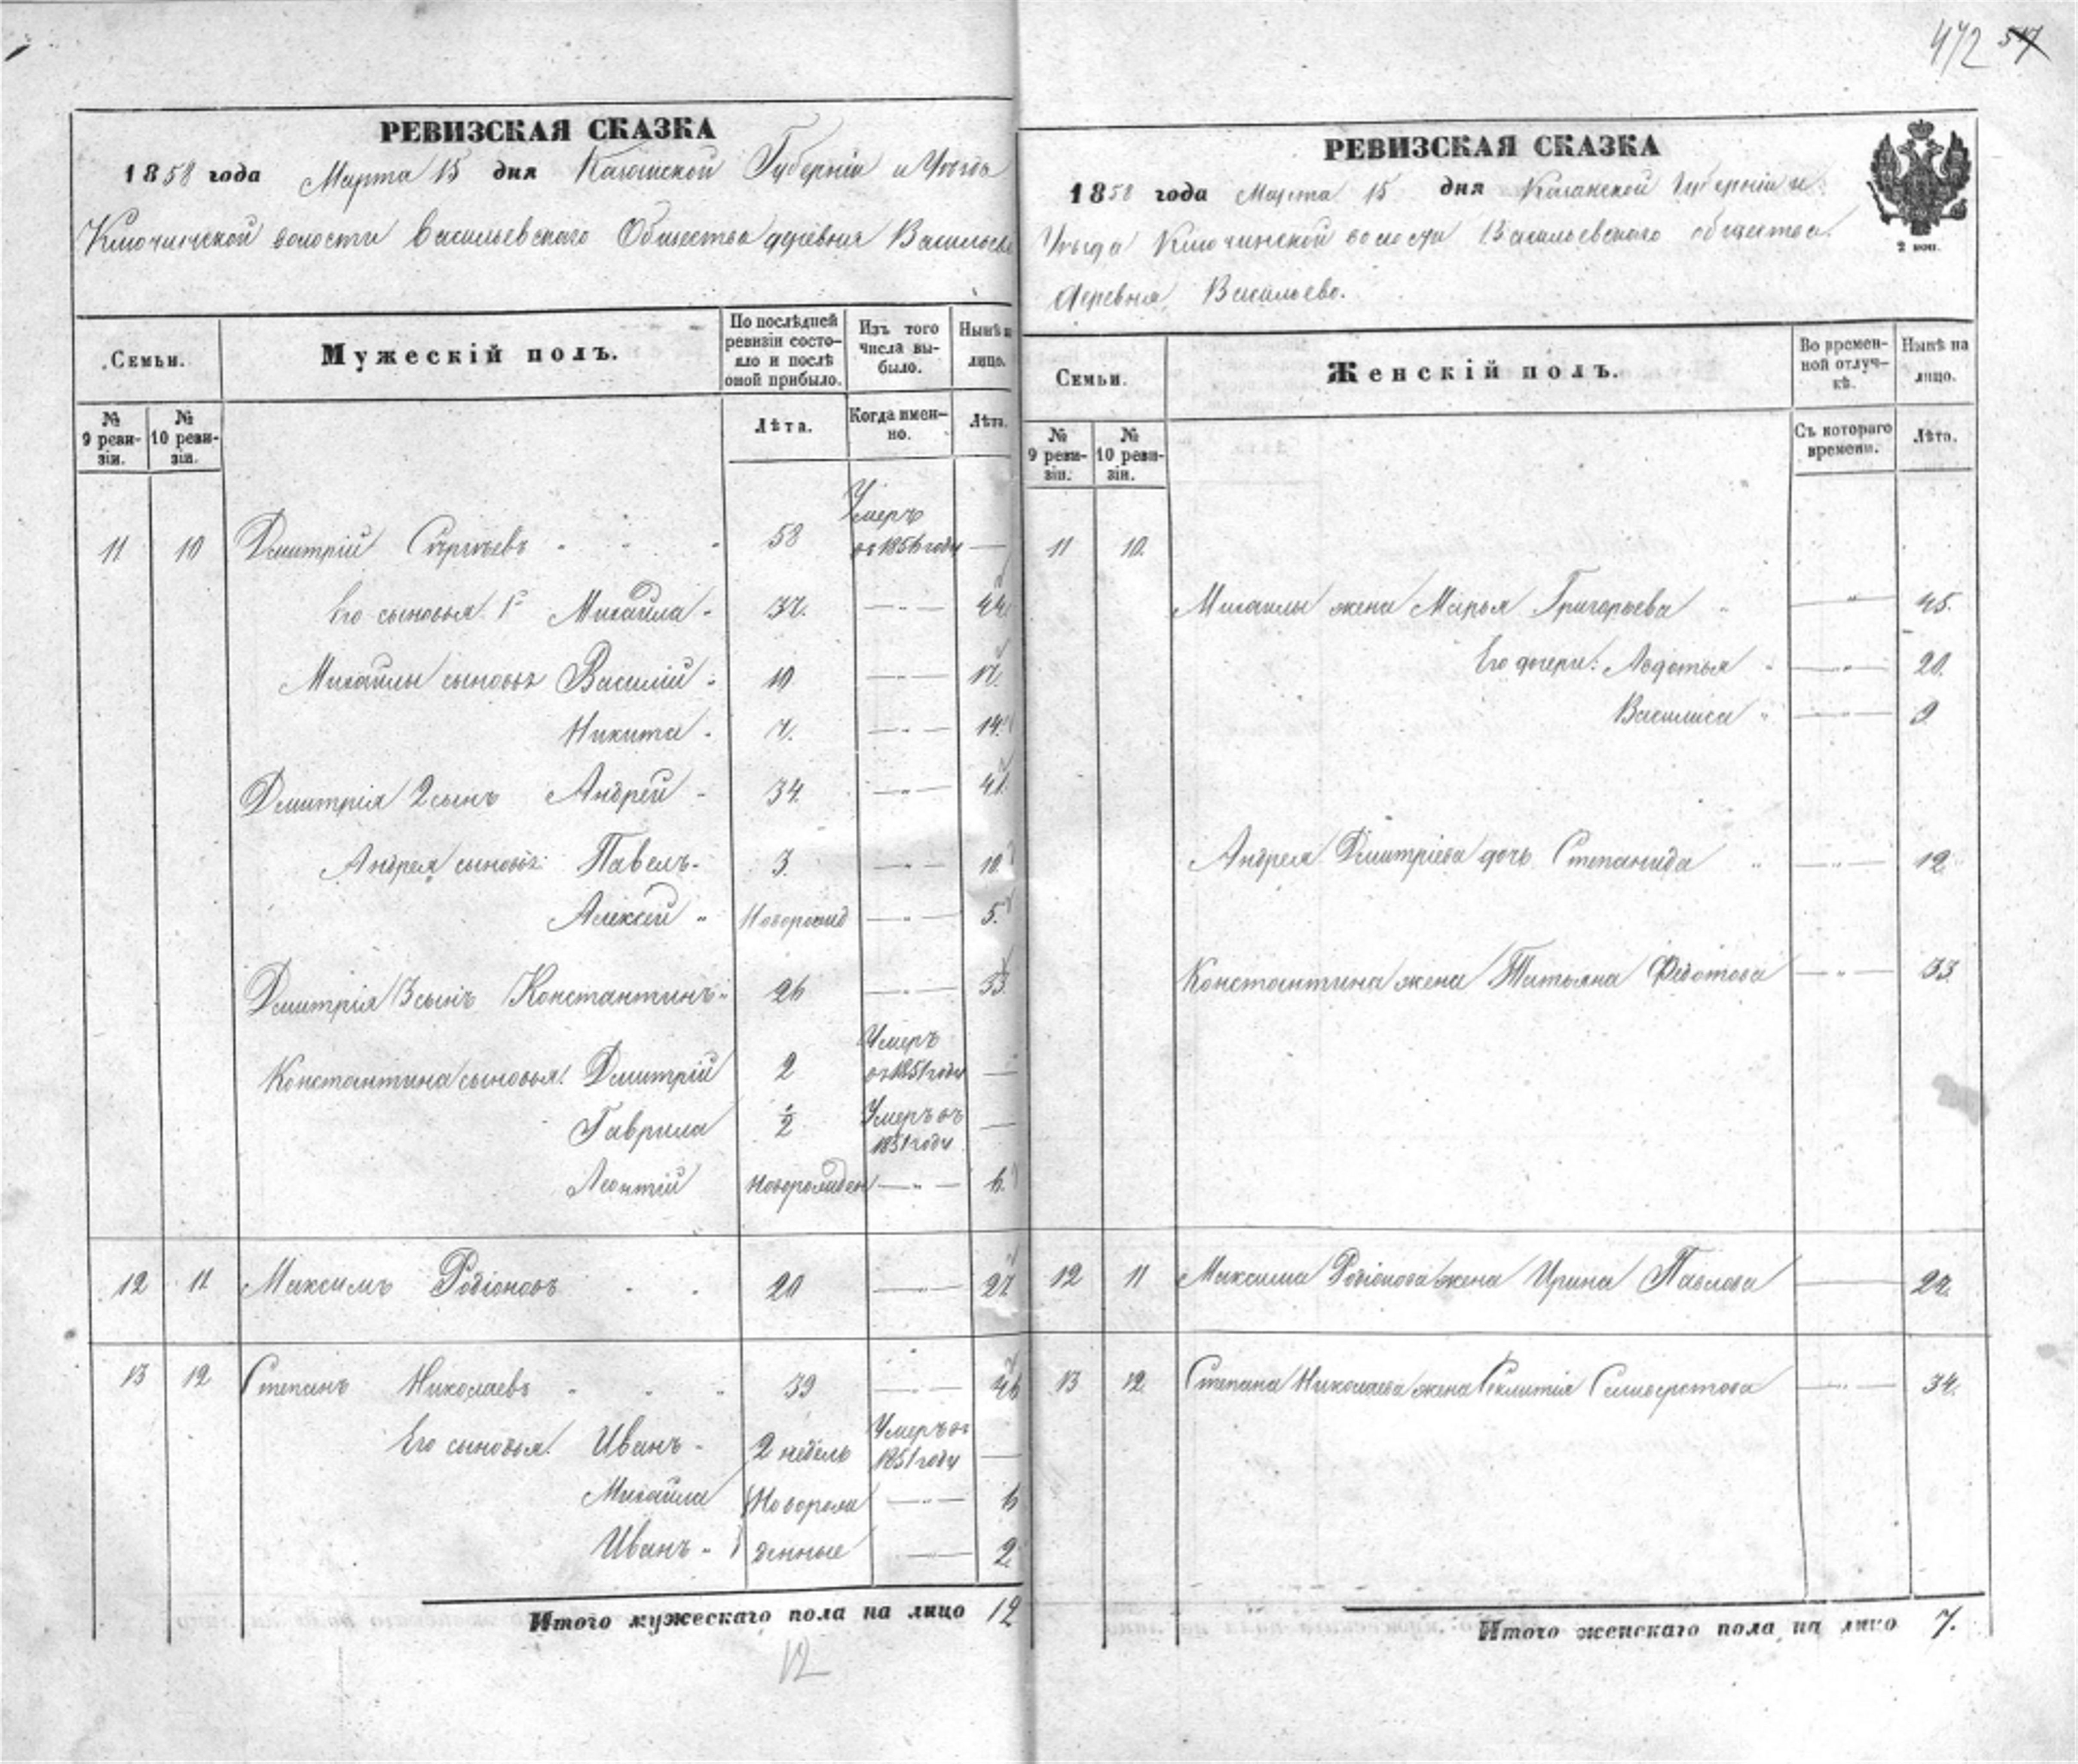 472 517
РЕВИЗСКАЯ СКАЗКА
1858 года Марта 15 дня Казанской Губерніи и Уѣзда
Ключинской волости Васильевскаго Общества деревня Васильево
Семьи.
Мужескій полъ.
По послѣдней ревизіи состояло и послѣ оной прибыло.
Изъ того числа выбыло.
Нынѣ на лицо.
№ 9 ревизіи.
№ 10 ревизіи.
Лѣта.
Когда именно.
Лѣта.
11 10 Дмитрій Сергѣевъ 58 Умеръ въ 1856 году —
Его сыновья 1й Михайла 37. — „ — 44.
Михайлы сыновья Василій 10 — „ — 17.
Никита 7. — „ — 14.
Дмитрія 2 сынъ Андрей 34. — „ — 41.
Андрея сыновья: Павелъ 3. — „ — 10.
Алексѣй Новорожд — „ — 5.
Дмитрія 3 сынъ Константинъ 26 — „ — 33.
Константина сыновья: Дмитрій 2 Умеръ въ 1851 году —
Гаврила ½ Умеръ въ 1851 году —
Леонтій новорожден — „ — 6.
12 11 Максимъ Родіоновъ 20 — „ — 27.
13 12 Степанъ Николаевъ 39 — „ — 46
Его сыновья: Иванъ 2 недѣль Умеръ въ 1851 году —
Михайла Новорож — „ — 6
Иванъ „ денные — „ — 2.
Итого мужескаго пола на лицо 12
12
РЕВИЗСКАЯ СКАЗКА
1858 года Марта 15 дня Казанской Губерніи и
Уѣзда Ключинской волости Васильевскаго общества.
деревня Васильево.
2 коп.
Семьи.
Женскій полъ.
Во временной отлучкѣ.
Нынѣ на лицо.
№ 9 ревизіи.
№ 10 ревизіи.
Съ котораго времени.
Лѣта.
11 10.
Михаилы жена Марья Григорьева — „ — 45.
Его дочери: Авдотья — „ — 20.
Василиса — „ — 9.
Андрея Дмитріева дочь Степанида — „ — 12.
Константина жена Татьяна Федотова — „ — 33.
12 11 Максима Родіонова жена Ирина Павлова — 27.
13 12 Степана Николаева жена Селиверстова — „ — 34.
Итого женскаго пола на лицо 7.